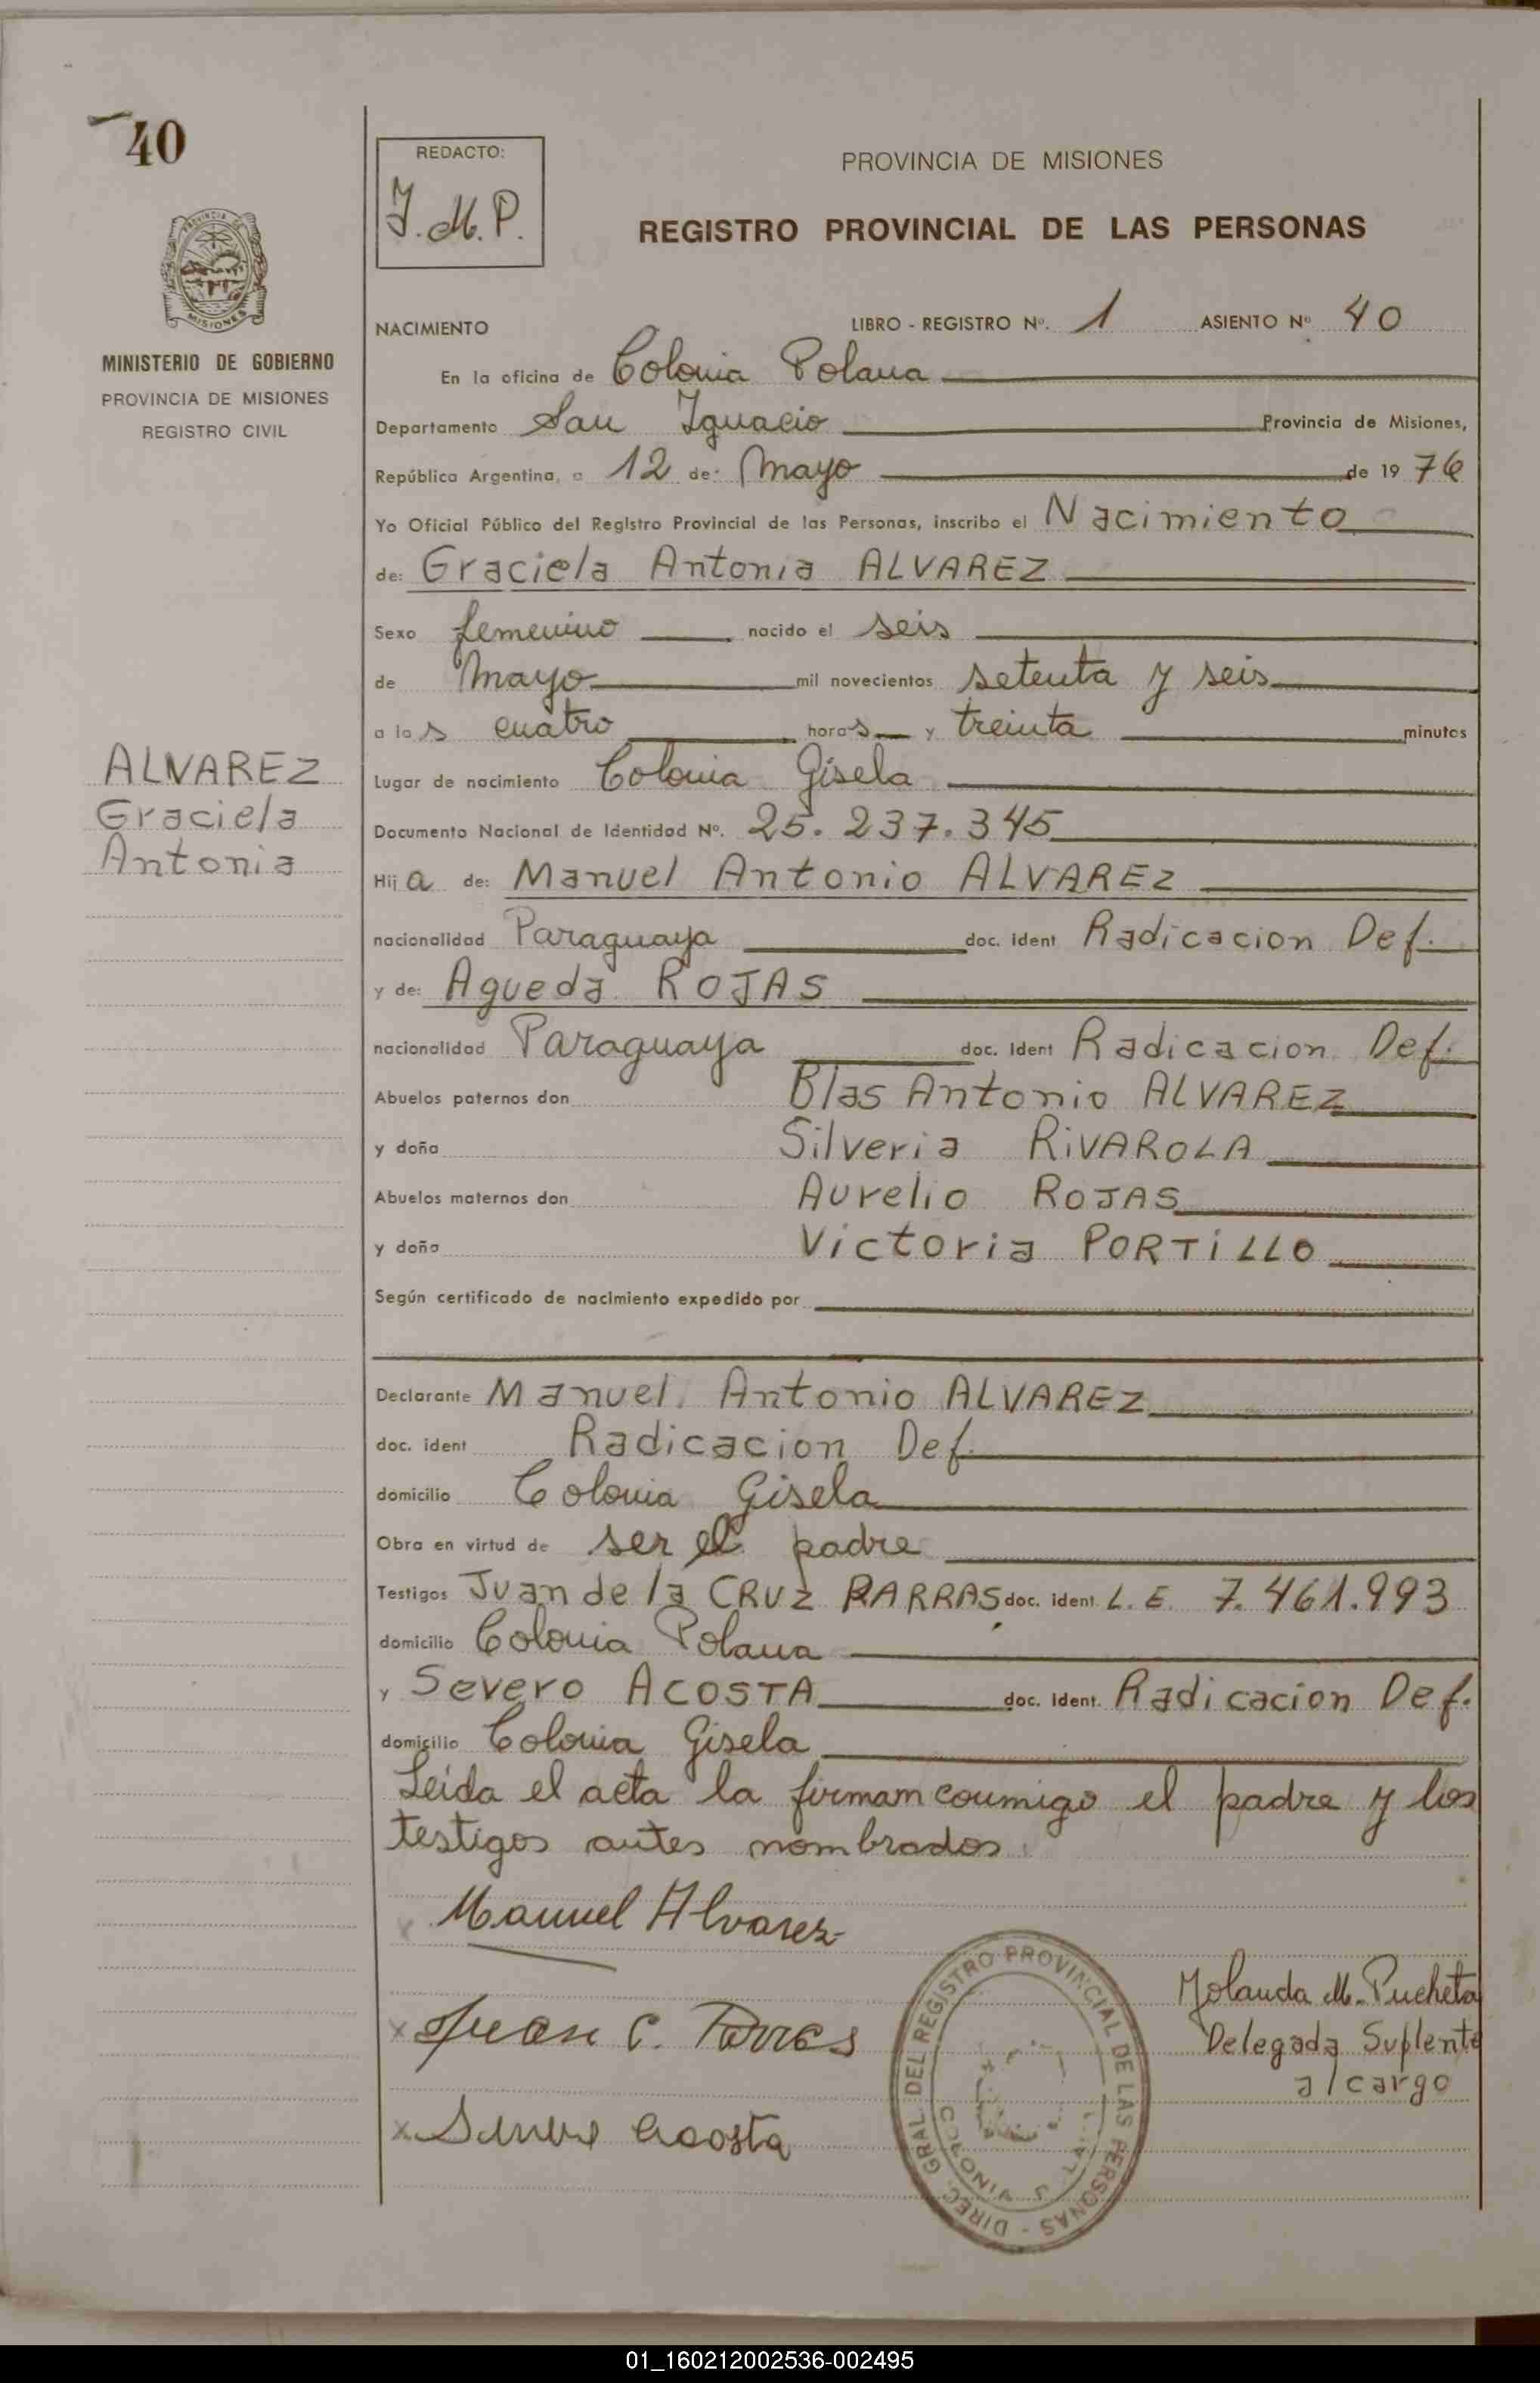 40
REDACTO:
Y. M. P.
PROVINCIA DE MISIONES
REGISTRO PROVINCIAL DE LAS PERSONAS
PROVINCIA DE
MISIONES
MINISTERIO DE GOBIERNO
PROVINCIA DE MISIONES
REGISTRO CIVIL
NACIMIENTO LIBRO - REGISTRO Nº. 1 ASIENTO Nº 40
En la oficina de Colonia Polana
Departamento San Ignacio Provincia de Misiones,
República Argentina, a 12 de: Mayo de 1976
Yo Oficial Público del Registro Provincial de las Personas, inscribo el Nacimiento
de: Graciela Antonia ALVAREZ
Sexo femenino nacido el seis
de Mayo mil novecientos setenta y seis
a las cuatro horas y treinta minutos
ALVAREZ
Graciela
Antonia
Lugar de nacimiento Colonia Gisela
Documento Nacional de Identidad Nº. 25.237.345
Hija de: Manuel Antonio ALVAREZ
nacionalidad Paraguaya doc. ident Radicacion Def.
y de: Agueda ROJAS
nacionalidad Paraguaya doc. ident Radicacion Def.
Abuelos paternos don Blas Antonio ALVAREZ
y doña Silveria RIVAROLA
Abuelos maternos don Aurelio ROJAS
y doña Victoria PORTILLO
Según certificado de nacimiento expedido por
Declarante Manuel Antonio ALVAREZ
doc. ident Radicacion Def.
domicilio Colonia Gisela
Obra en virtud de ser el padre
Testigos Juan de la CRUZ PARRAS doc. ident. L. E. 7.461.993
domicilio Colonia Polana
y Severo ACOSTA doc. ident. Radicacion Def.
domicilio Colonia Gisela
Leída el acta la firman conmigo el padre y los
testigos antes nombrados.
Manuel Alvarez
Yolanda M. Pucheta
Delegada Suplente
a/cargo
x Juan C. Parras
x Acosta
DIREC. GRAL. DEL REGISTRO PROVINCIAL DE LAS PERSONAS -
COLONIA
01_160212002536-002495